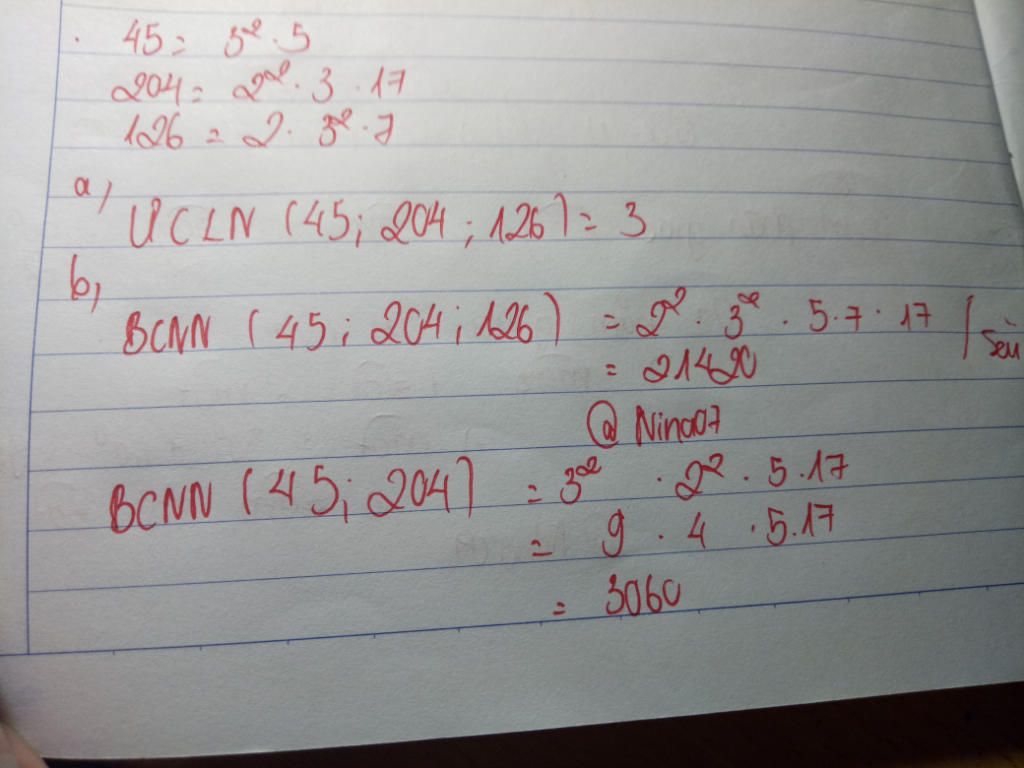 . 45 = 3² . 5
204 = 2² . 3 . 17
126 = 2 . 3² . 7
a,
ƯCLN (45; 204; 126) = 3
b,
BCNN (45; 204; 126) = 2² . 3² . 5 . 7 . 17 /
= 21420
@Nina07
BCNN (45; 204) = 3² . 2² . 5 . 17
= 9 . 4 . 5 . 17
= 3060